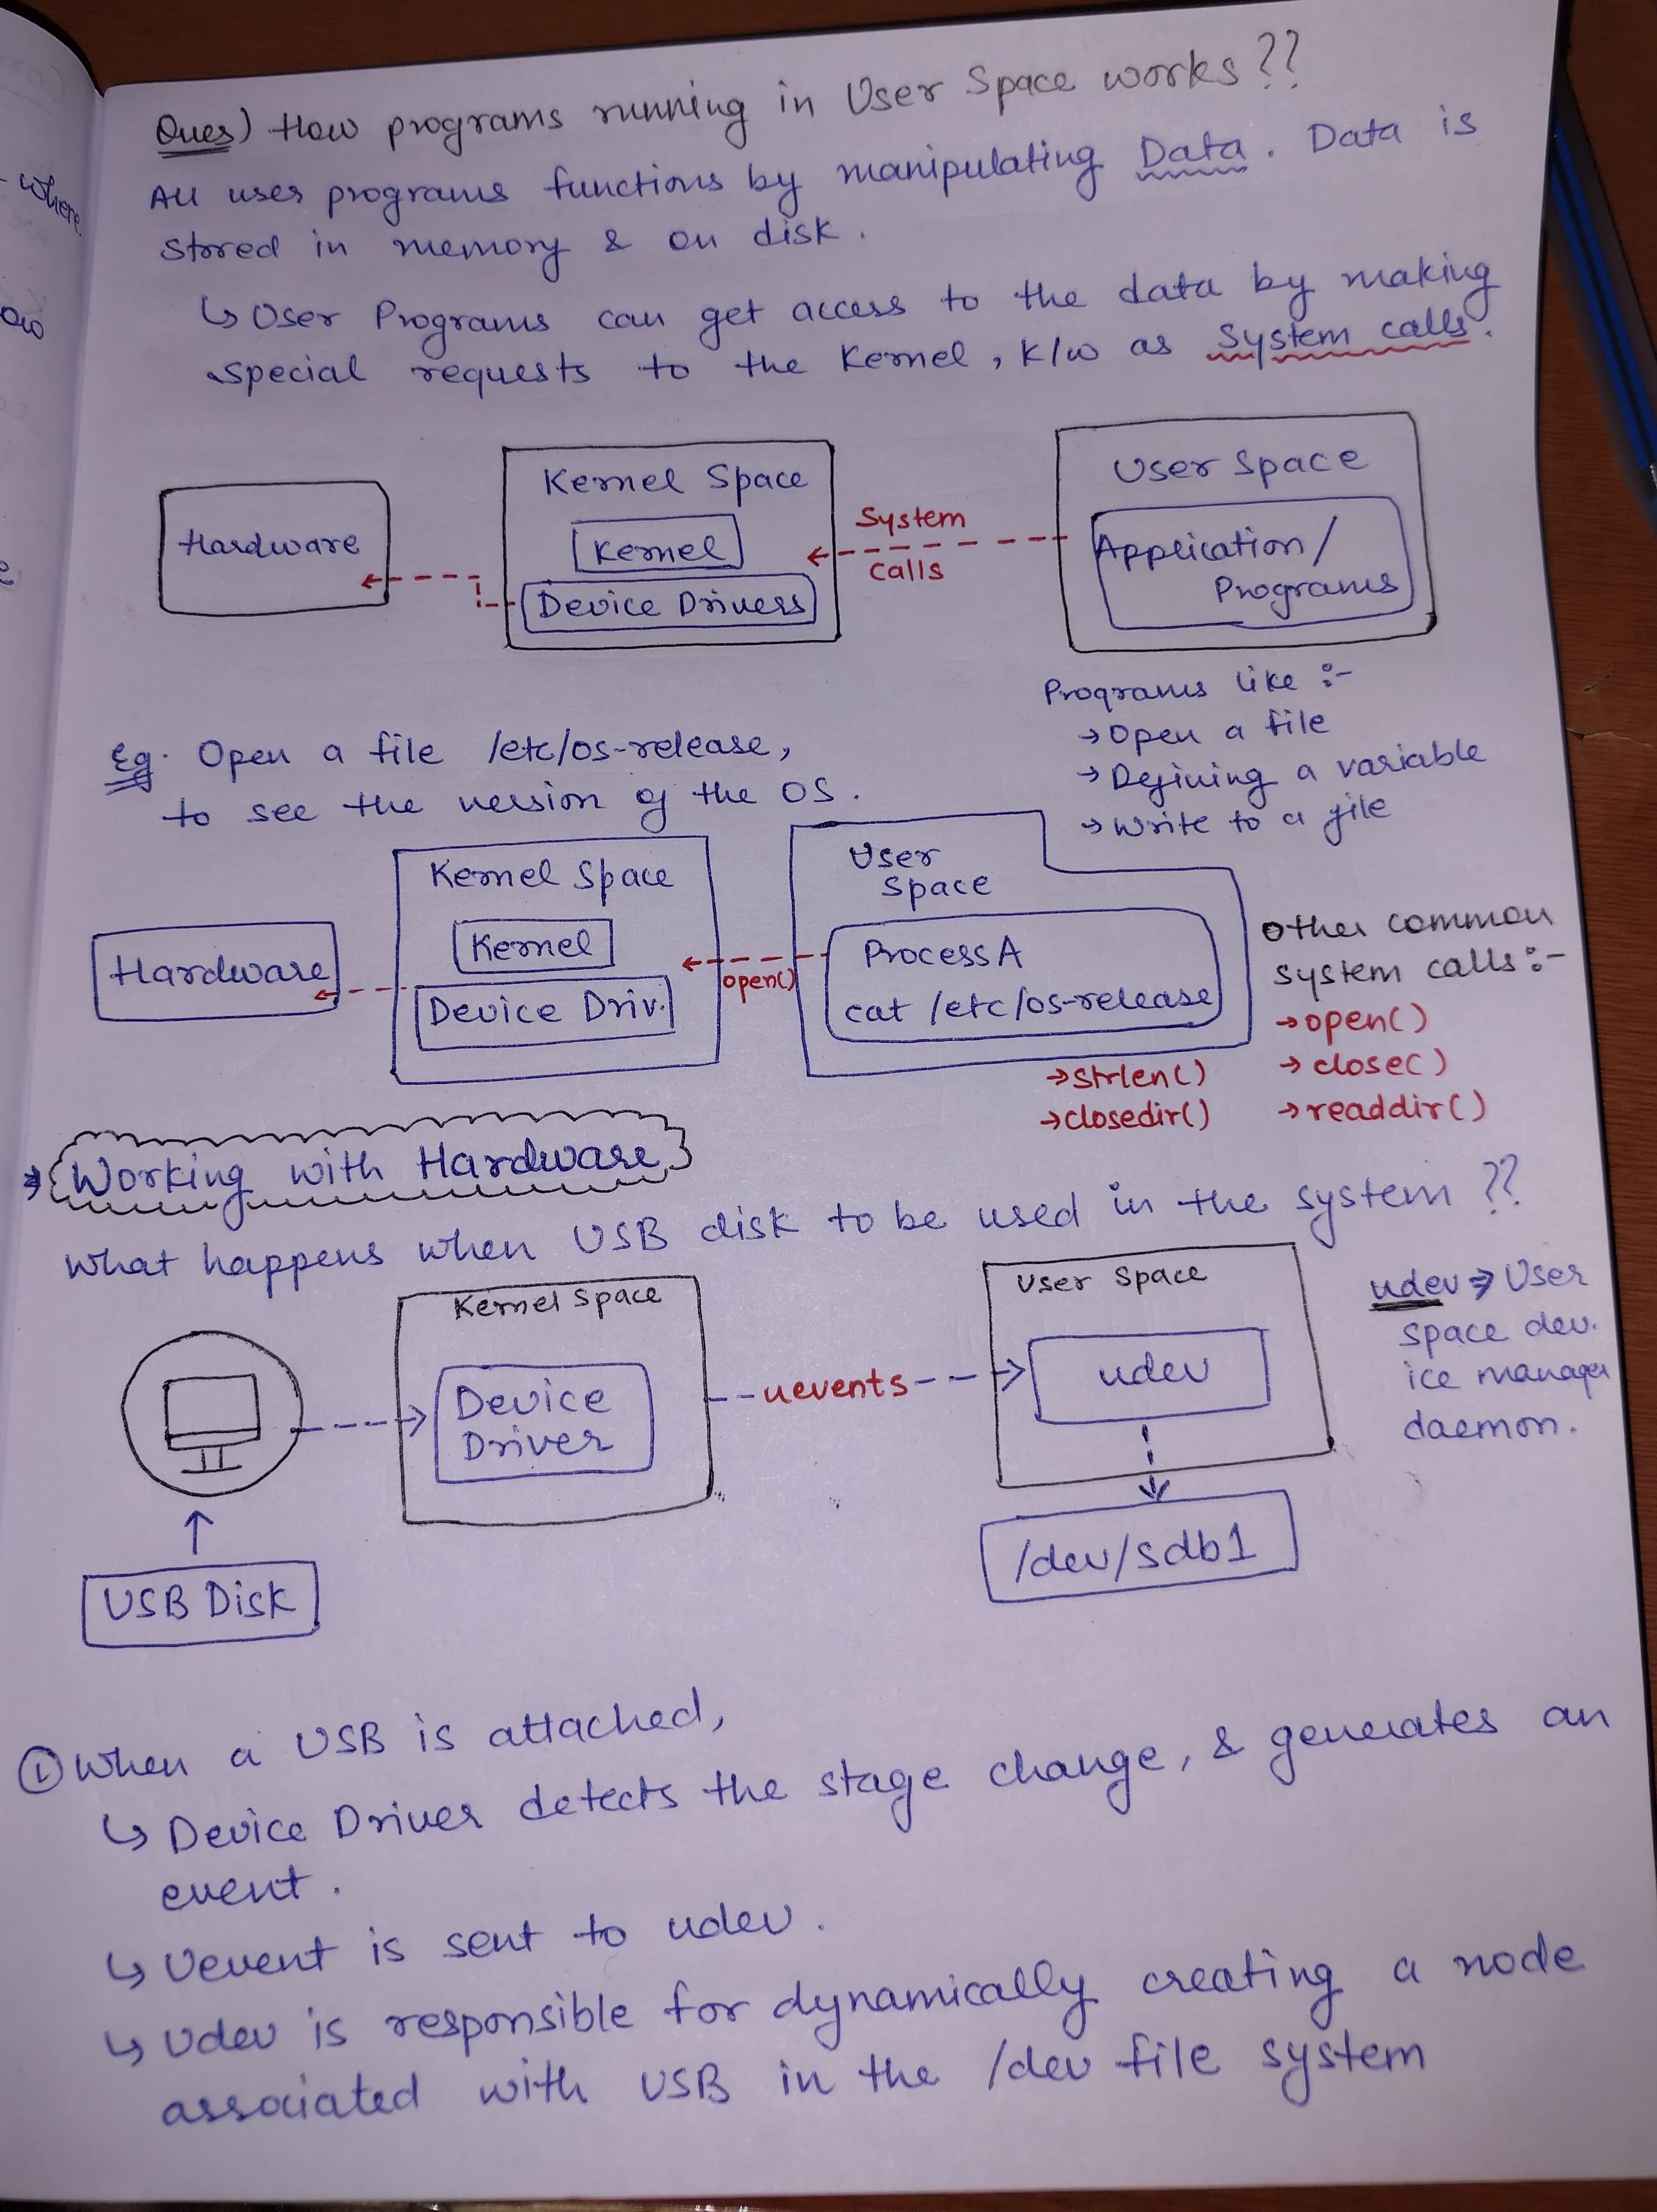 Ques) How programs running in User Space works??
All user programs functions by manipulating Data. Data is
stored in memory & on disk.
↳ User Programs can get access to the data by making
special requests to the Kernel, k/w as System calls.
Hardware
Kernel Space
Kernel
Device Drivers
System
calls
User Space
Application/
Programs
Programs like :-
→ Open a file
→ Defining a variable
→ Write to a file
Eg. Open a file /etc/os-release,
to see the version of the OS.
Hardware
Kernel Space
Kernel
Device Driv.
open()
User
Space
Process A
cat /etc/os-release
Other common
system calls:-
→ open()
→ close()
→ readdir()
→ strlen()
→ closedir()
⇒ Working with Hardware
What happens when USB disk to be used in the system ??
USB Disk
Kernel Space
Device
Driver
uevents
User Space
udev
/dev/sdb1
udev ⇒ User
space dev.
ice manager
daemon.
① When a USB is attached,
↳ Device Driver detects the stage change, & generates an
event.
↳ Uevent is sent to udev.
↳ Udev is responsible for dynamically creating a node
associated with USB in the /dev file system
where